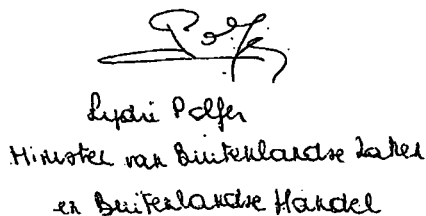 Lydie Polfer
Minister van Buitenlandse Zaken
en Buitenlandse Handel